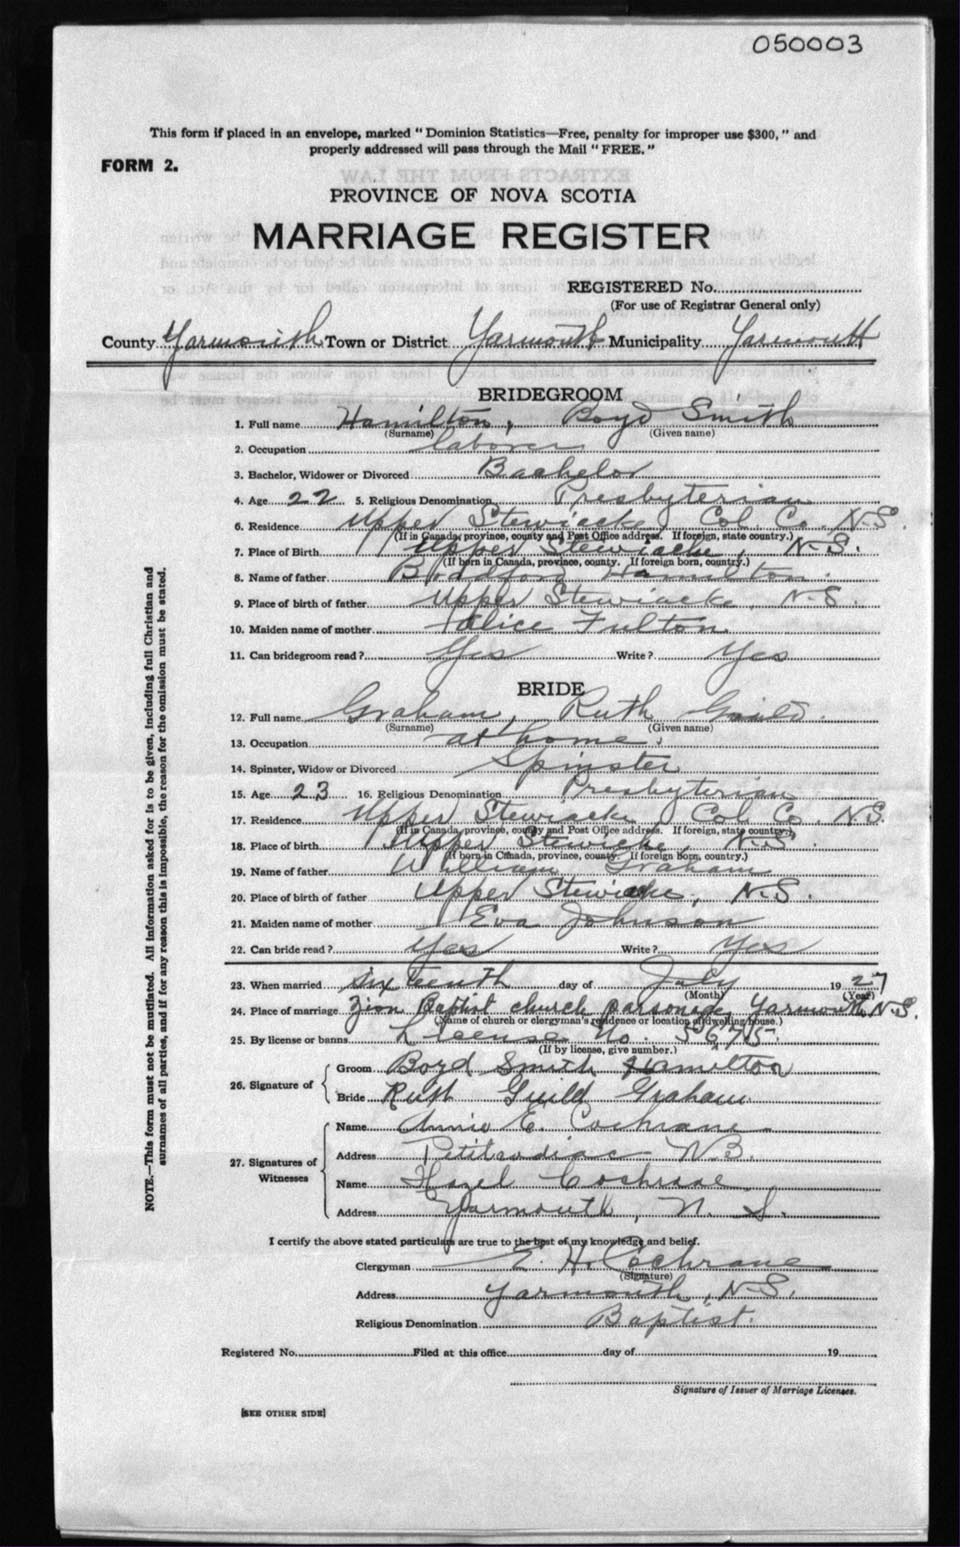 050003
This form if placed in an envelope, marked "Dominion Statistics—Free, penalty for improper use $300," and
properly addressed will pass through the Mail "FREE."
FORM 2.
PROVINCE OF NOVA SCOTIA
MARRIAGE REGISTER
REGISTERED No.
(For use of Registrar General only)
County Yarmouth Town or District Yarmouth Municipality Yarmouth
BRIDEGROOM
1. Full name Hamilton, Boyd Smith
(Surname) (Given name)
2. Occupation laborer
3. Bachelor, Widower or Divorced Bachelor
4. Age 22 5. Religious Denomination Presbyterian
6. Residence Upper Stewiacke Col. Co. N.S.
(If in Canada, province, county and Post Office address. If foreign, state country.)
7. Place of Birth Upper Stewiacke, N.S.
(If born in Canada, province, county. If foreign born, country.)
8. Name of father Bradford Hamilton.
9. Place of birth of father Upper Stewiacke, N.S.
10. Maiden name of mother Alice Fulton
11. Can bridegroom read? Yes Write? Yes
BRIDE
12. Full name Graham, Ruth Guild.
(Surname) (Given name)
13. Occupation at home.
14. Spinster, Widow or Divorced Spinster
15. Age 23 16. Religious Denomination Presbyterian
17. Residence Upper Stewiacke Col. Co. N.S.
(If in Canada, province, county and Post Office address. If foreign, state country)
18. Place of birth Upper Stewiacke, N.S.
(If born in Canada, province, county. If foreign born, country.)
19. Name of father William Graham
20. Place of birth of father Upper Stewiacke, N.S.
21. Maiden name of mother Eva Johnson
22. Can bride read? Yes Write? Yes
23. When married sixteenth day of July 1927
(Month) (Year)
24. Place of marriage Zion Baptist church parsonage, Yarmouth, N.S.
(Name of church or clergyman's residence or location of dwelling house.)
25. By license or banns License No. 5675.
(If by license, give number.)
26. Signature of
Groom Boyd Smith Hamilton
Bride Ruth Guild Graham
27. Signatures of Witnesses
Name Annie E. Cochrane
Address Petitcodiac N.B.
Name Hazel Cochrane
Address Yarmouth, N.S.
I certify the above stated particulars are true to the best of my knowledge and belief.
Clergyman E. H. Cochrane
(Signature)
Address Yarmouth, N.S.
Religious Denomination Baptist.
Registered No. Filed at this office day of 19
Signature of Issuer of Marriage Licenses.
[SEE OTHER SIDE]
NOTE.—This form must not be mutilated. All information asked for is to be given, including full Christian and
surnames of all parties, and if for any reason this is impossible, the reason for the omission must be stated.